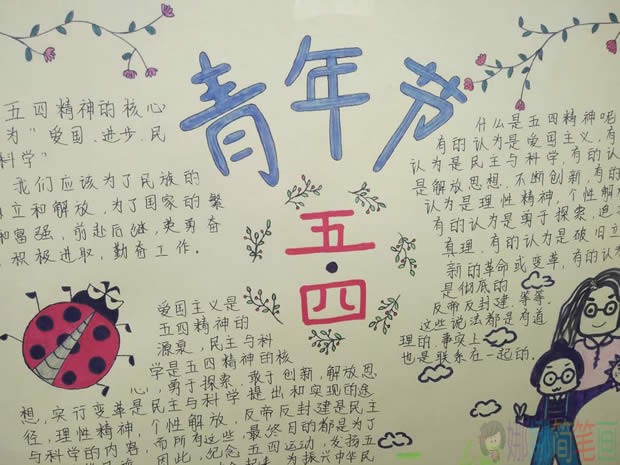 青年节
五·四
五四精神的核心
为"爱国.进步.民
科学"
我们应该为了民族的
立和解放,为了国家的繁
和富强,前赴后继,英勇奋
.积极进取,勤奋工作.
什么是五四精神呢
有的认为是爱国主义,有
认为是民主与科学,有的认
是解放思想.不断创新,有的
认为是理性精神,个性解放
有的认为是勇于探索,追
真理.有的认为是破旧立
新的革命或变革,有的认
是彻底的
反帝反封建.等等.
这些说法都是有道
理的.事实上
也是联系在一起的.
爱国主义是
五四精神的
源泉,民主与科
学是五四精神的核
心,勇于探索.敢于创新,解放思
想,实行变革是民主与科学提出和实现的途
径,理性精神,个性解放,反帝反封建是民主
与科学的内容,而所有这些,最终目的都是为了
因此,纪念五四运动,发扬五
为振兴中华民
娜娜简笔画